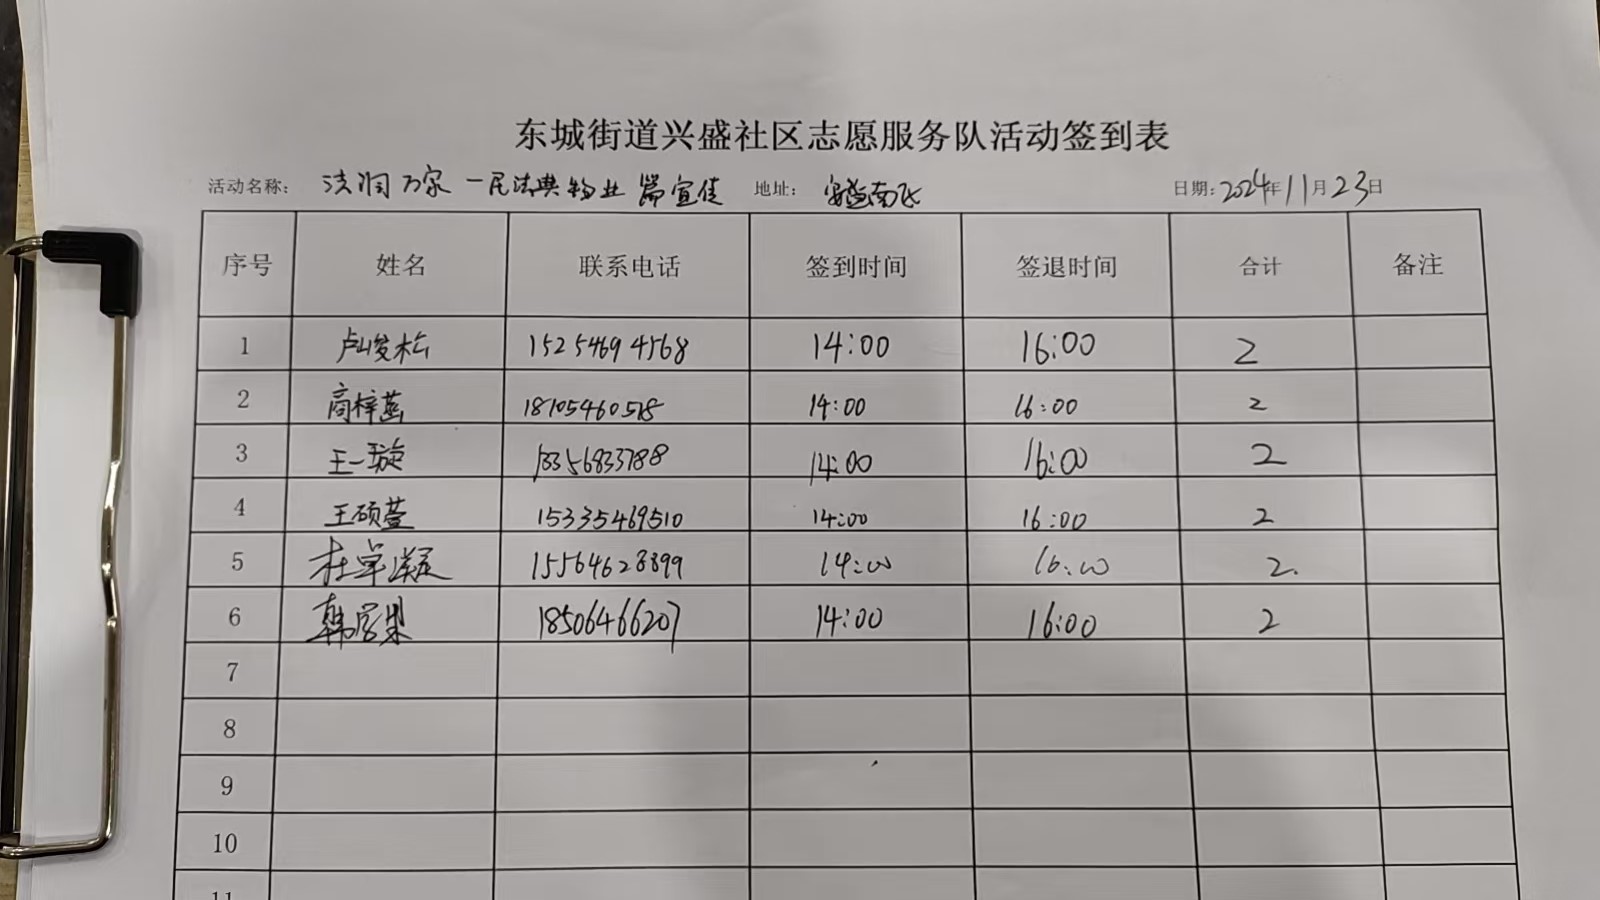 东城街道兴盛社区志愿服务队活动签到表
活动名称: 法润万家 一民法典物业篇宣传 地址: 日期:2024年11月23日
序号 姓名 联系电话 签到时间 签退时间 合计 备注
1 卢峻松 15254694568 14:00 16:00 2
2 高梓菡 18105460518 14:00 16:00 2
3 王一璇 18356833788 14:00 16:00 2
4 王硕萱 15335469510 14:00 16:00 2
5 杜卓凝 15564628899 14:00 16:00 2.
6 韩 18506466207 14:00 16:00 2
7
8
9
10
11